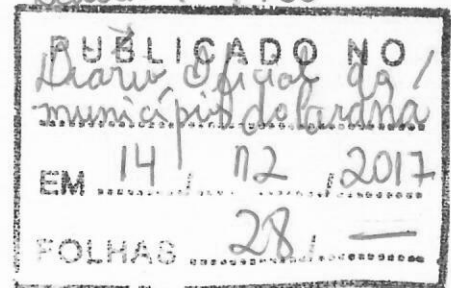 PUBLICADO NO
Diario Oficial do
município do Paraná
EM 14 / 12 / 2017
FOLHAS 28 / —